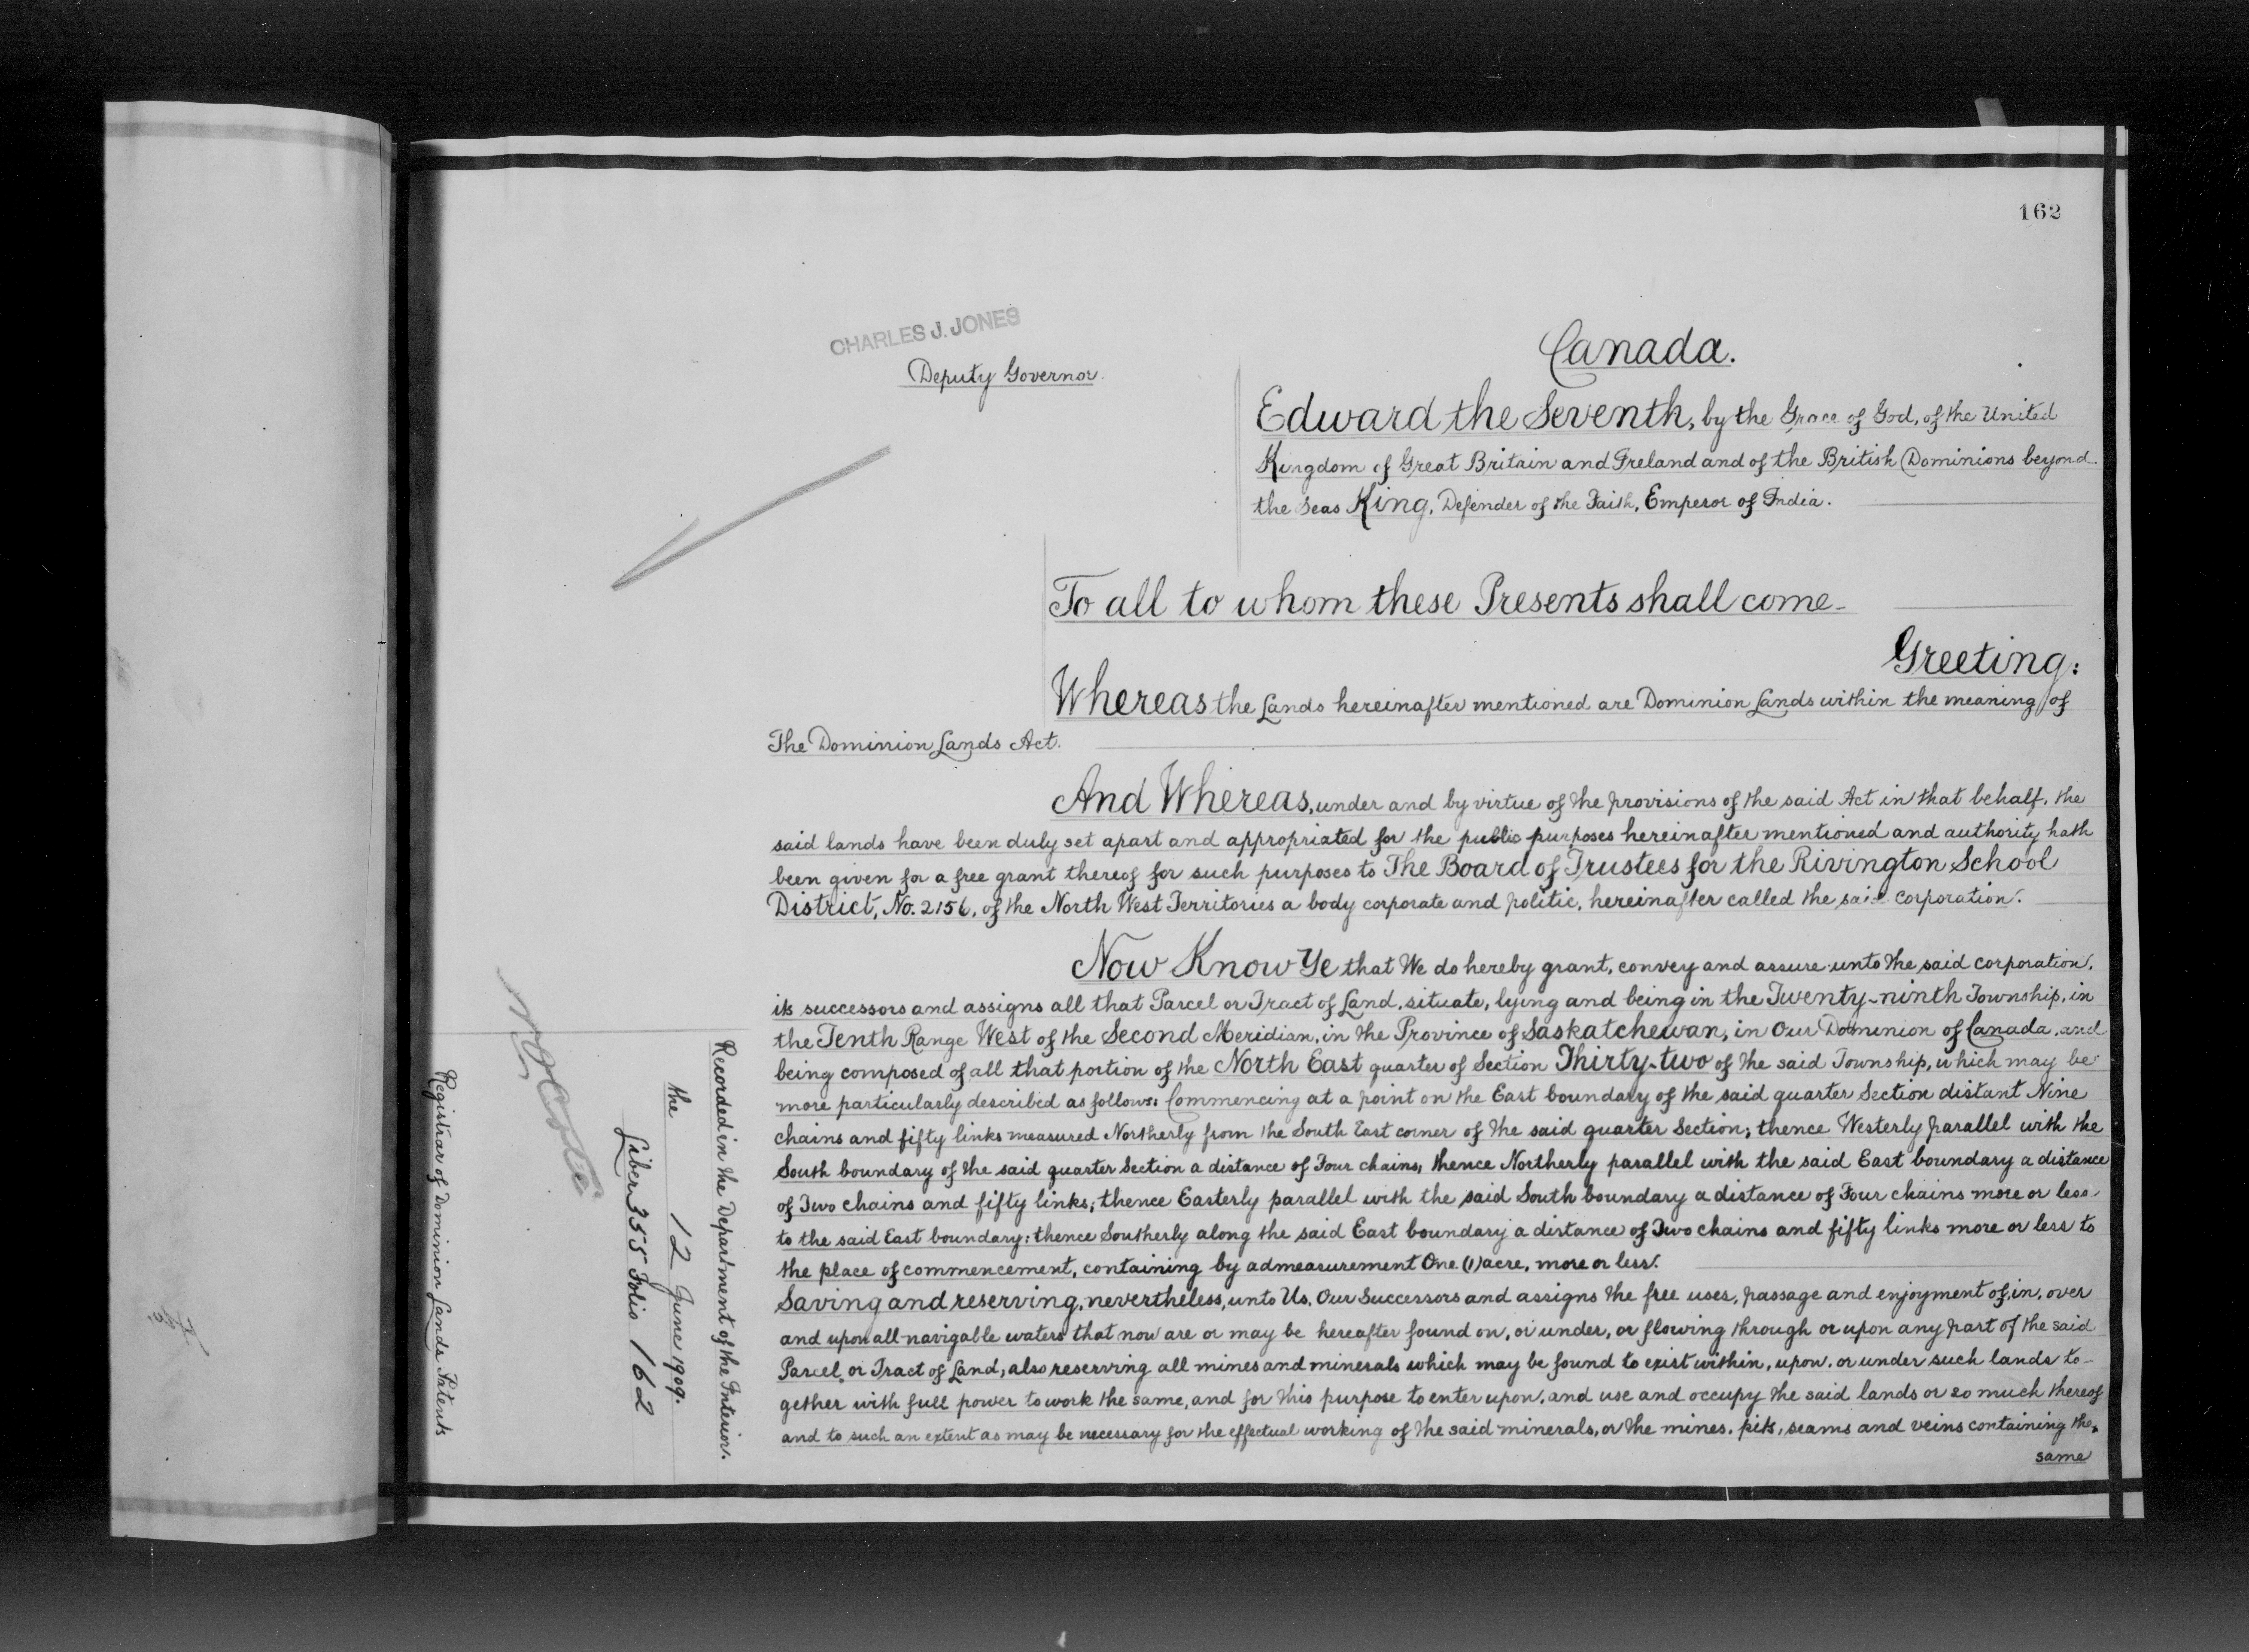 162
CHARLES J. JONES
Deputy Governor.
Canada.
Edward the Seventh, by the Grace of God, of the United
Kingdom of Great Britain and Ireland and of the British Dominions beyond
the Seas King, Defender of the Faith, Emperor of India.
To all to whom these Presents shall come—
Greeting:
Whereas the Lands hereinafter mentioned are Dominion Lands within the meaning of
The Dominion Lands Act.
And Whereas, under and by virtue of the provisions of the said Act in that behalf, the
said lands have been duly set apart and appropriated for the public purposes hereinafter mentioned and authority hath
been given for a free grant thereof for such purposes to The Board of Trustees for the Rivington School
District, No. 2156, of the North West Territories a body corporate and politic, hereinafter called the said corporation.
Now Know Ye that We do hereby grant, convey and assure unto the said corporation,
its successors and assigns all that Parcel or Tract of Land, situate, lying and being in the Twenty-ninth Township, in
the Tenth Range West of the Second Meridian, in the Province of Saskatchewan, in Our Dominion of Canada, and
being composed of all that portion of the North East quarter of Section Thirty-two of the said Township, which may be
more particularly described as follows: Commencing at a point on the East boundary of the said quarter Section distant Nine
chains and fifty links measured Northerly from the South East corner of the said quarter Section; thence Westerly parallel with the
South boundary of the said quarter Section a distance of Four chains, thence Northerly parallel with the said East boundary a distance
of Two chains and fifty links; thence Easterly parallel with the said South boundary a distance of Four chains more or less,
to the said East boundary; thence Southerly along the said East boundary a distance of Two chains and fifty links more or less to
the place of commencement, containing by admeasurement One (1) acre, more or less.
Saving and reserving, nevertheless, unto Us, Our Successors and assigns the free uses, passage and enjoyment of, in, over
and upon all navigable waters that now are or may be hereafter found on, or under, or flowing through or upon any part of the said
Parcel or Tract of Land; also reserving all mines and minerals which may be found to exist within, upon, or under such lands to-
gether with full power to work the same, and for this purpose to enter upon, and use and occupy the said lands or so much thereof
and to such an extent as may be necessary for the effectual working of the said minerals, or the mines, pits, seams and veins containing the
same
Recorded in the Department of the Interior.
the 12 June 1909.
Liber 355 Folio 162
Registrar of Dominion Lands Patents